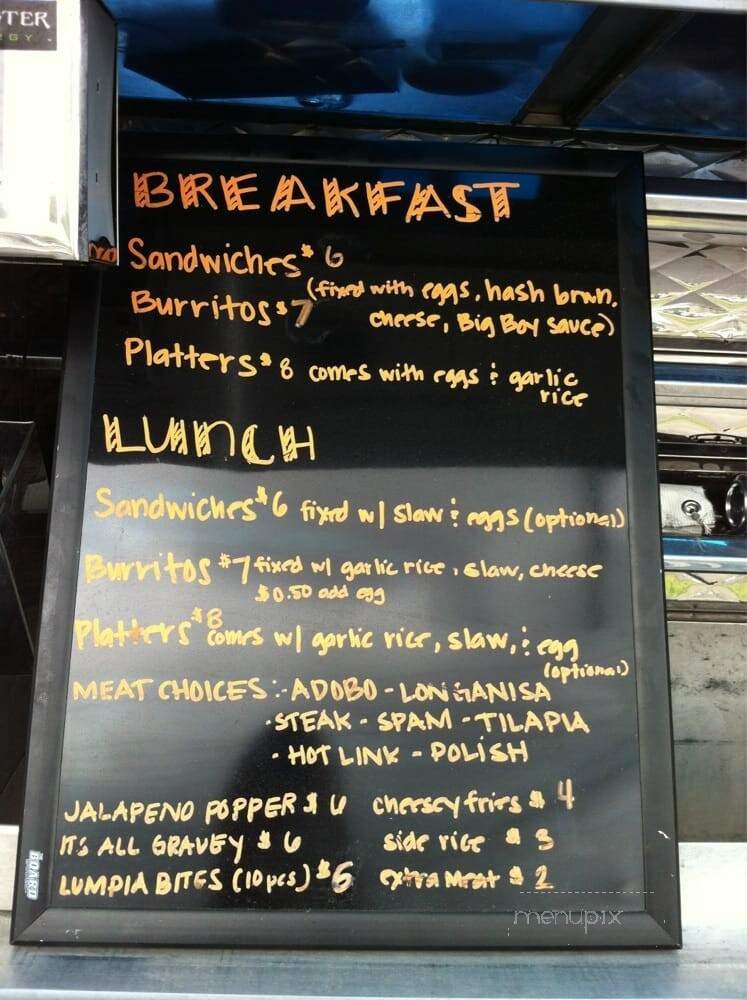 TER
RGY
BREAKFAST
Sandwiches $ 6
Burritos $7 (fixed with eggs, hash brwn,
cheese, Big Boy sauce)
Platters $ 8 comes with eggs & garlic
rice
LUNCH
Sandwiches $6 fixed w/ slaw & eggs (optional)
Burritos $7 fixed w/ garlic rice, slaw, cheese
$0.50 add egg
Platters $8 comes w/ garlic rice, slaw, & egg
(optional)
MEAT CHOICES :- ADOBO - LONGANISA
- STEAK - SPAM - TILAPIA
- HOT LINK - POLISH
JALAPENO POPPER $ 6 cheesey fries $ 4
ITS ALL GRAVEY $ 6 side rice $ 3
LUMPIA BITES (10 pcs) $6 extra meat $ 2
BOARD
menupix